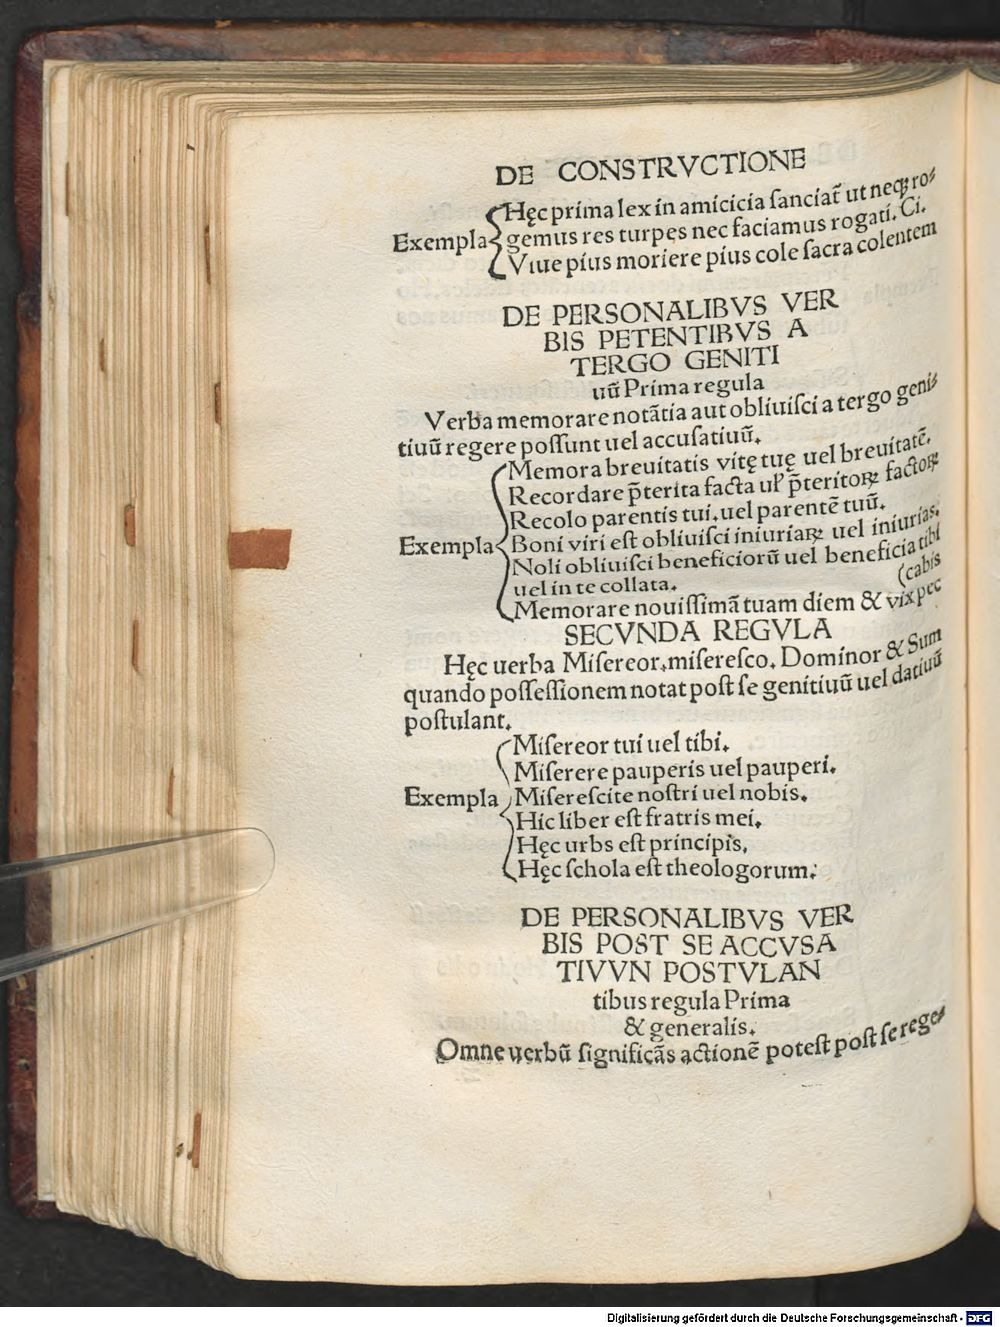 DE CONSTRVCTIONE
Hęc prima lex in amicicia sanciat̃ ut neqꝫ ro⸗
Exempla gemus res turpes nec faciamus rogati. Ci.
Viue pius moriere pius cole sacra colentem
DE PERSONALIBVS VER
BIS PETENTIBVS A
TERGO GENITI
uũ Prima regula
Verba memorare notãtia aut obliuisci a tergo geni⸗
tiuũ regere possunt uel accusatiuũ.
Memora breuitatis vitę tuę uel breuitatẽ.
Recordare p̃terita facta uꝉ p̃teritoꝝ factoꝝ
Recolo parentis tui. uel parentẽ tuũ.
Exempla Boni viri est obliuisci iniuriaꝝ uel iniurias.
Noli obliuisci beneficiorũ uel beneficia tibi
uel in te collata. (cabis
Memorare nouissimã tuam diem & vix pec
SECVNDA REGVLA
Hęc uerba Misereor. miseresco. Dominor & Sum
quando possessionem notat post se genitiuũ uel datiuũ
postulant.
Misereor tui uel tibi.
Miserere pauperis uel pauperi.
Exempla Miserescite nostri uel nobis.
Hic liber est fratris mei.
Hęc urbs est principis.
Hęc schola est theologorum.
DE PERSONALIBVS VER
BIS POST SE ACCVSA
TIVVN POSTVLAN
tibus regula Prima
& generalis.
Omne uerbũ significãs actionẽ potest post se rege⸗
Digitalisierung gefördert durch die Deutsche Forschungsgemeinschaft - DFG